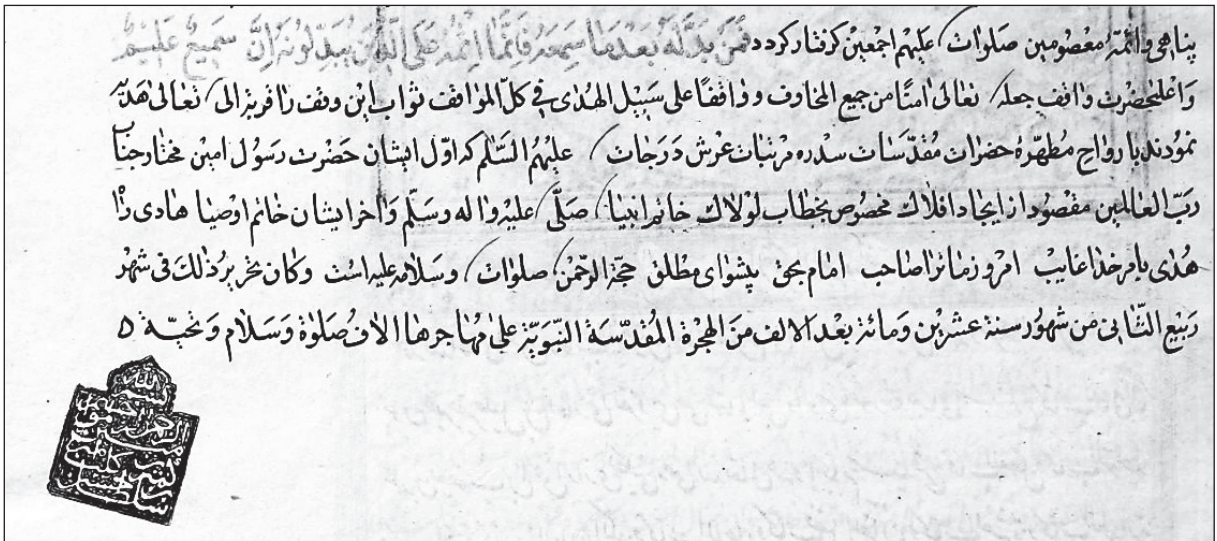 پناهی و ائمهٔ معصومین صلوات علیهم اجمعین کرفتار کردد فمن بدله بعد ما سمعه فانما اثمه علی الذین یبدلونه ان سمیع علیم
و اعلیحضرت واقف جعله تعالی امنا من جمیع المخاوف و واقفا علی سبیل الهدی فی کل المواقف ثواب این وقف را قربة الی تعالی هدیه
نمودند بارواح مطهرهٔ حضرات مقدسات سدره مرتبات عرش درجات علیهم السلم که اول ایشان حضرت رسول امین مختار جناب
رب العالمین مقصود از ایجاد افلاک مخصوص بخطاب لولاک خاتم انبیا صلی علیه و اله وسلم و اخر ایشان خاتم اوصیا هادی راه
هدی بامر خدا غایب امروز مانرا صاحب امام بحق پیشوای مطلق حجة الرحمن صلوات وسلامه علیه است وکان تحریر ذلک فی شهر
ربیع الثانی من شهور سنة عشرین ومائة بعد الالف من الهجرة المقدسة النبویة علی مهاجرها الاف صلوة وسلام وتحیة ۵